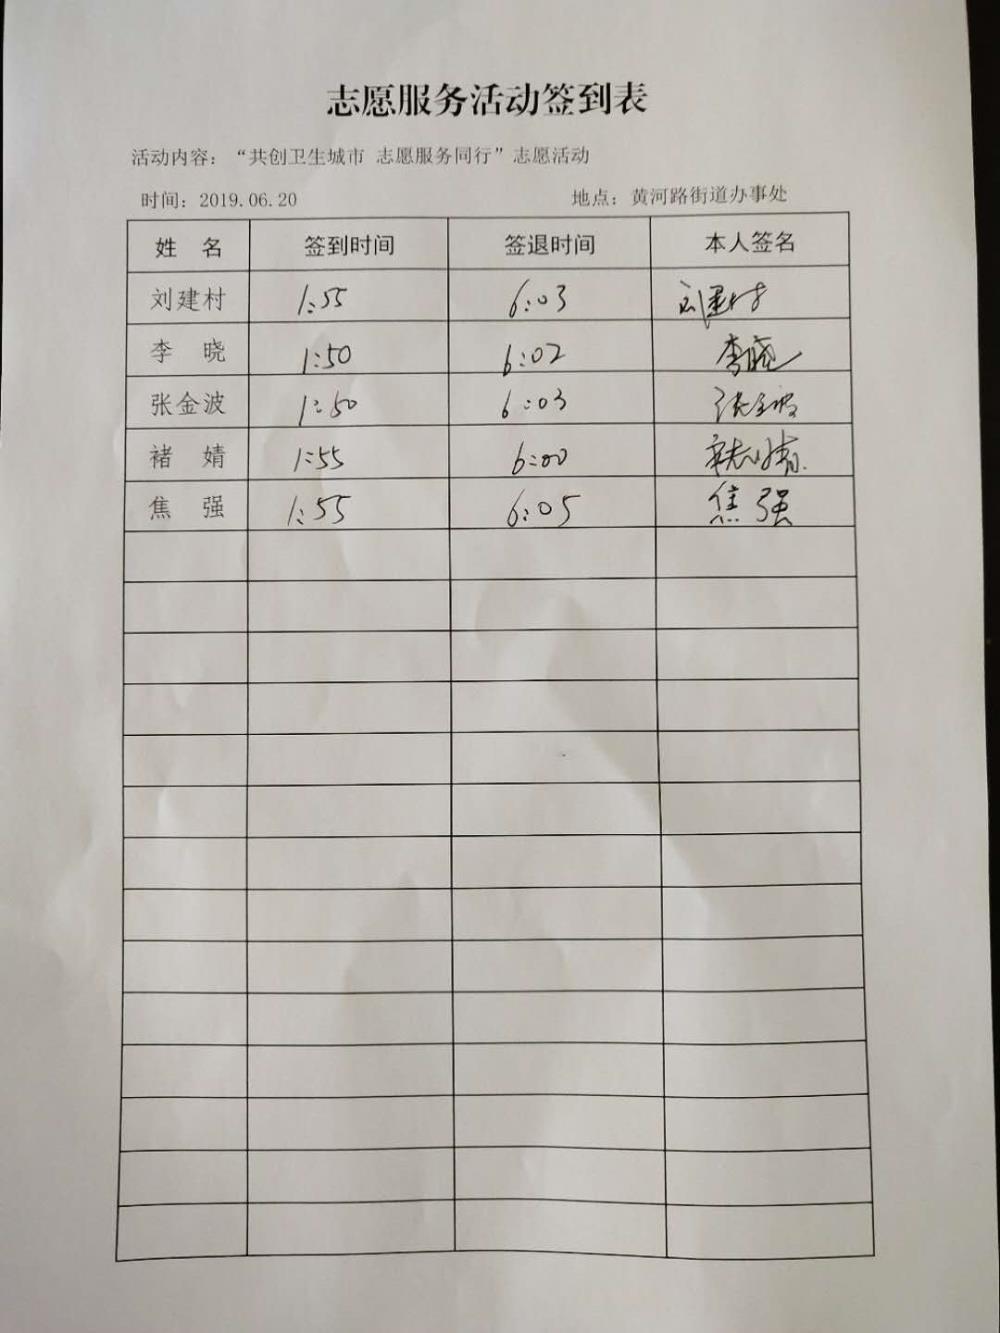 志愿服务活动签到表
活动内容：“共创卫生城市 志愿服务同行”志愿活动
时间：2019.06.20 地点：黄河路街道办事处
姓 名 签到时间 签退时间 本人签名
刘建村 1:55 6:03 刘建村
李 晓 1:50 6:02 李晓
张金波 1:50 6:03 张金波
褚 婧 1:55 6:00 褚婧
焦 强 1:55 6:05 焦强